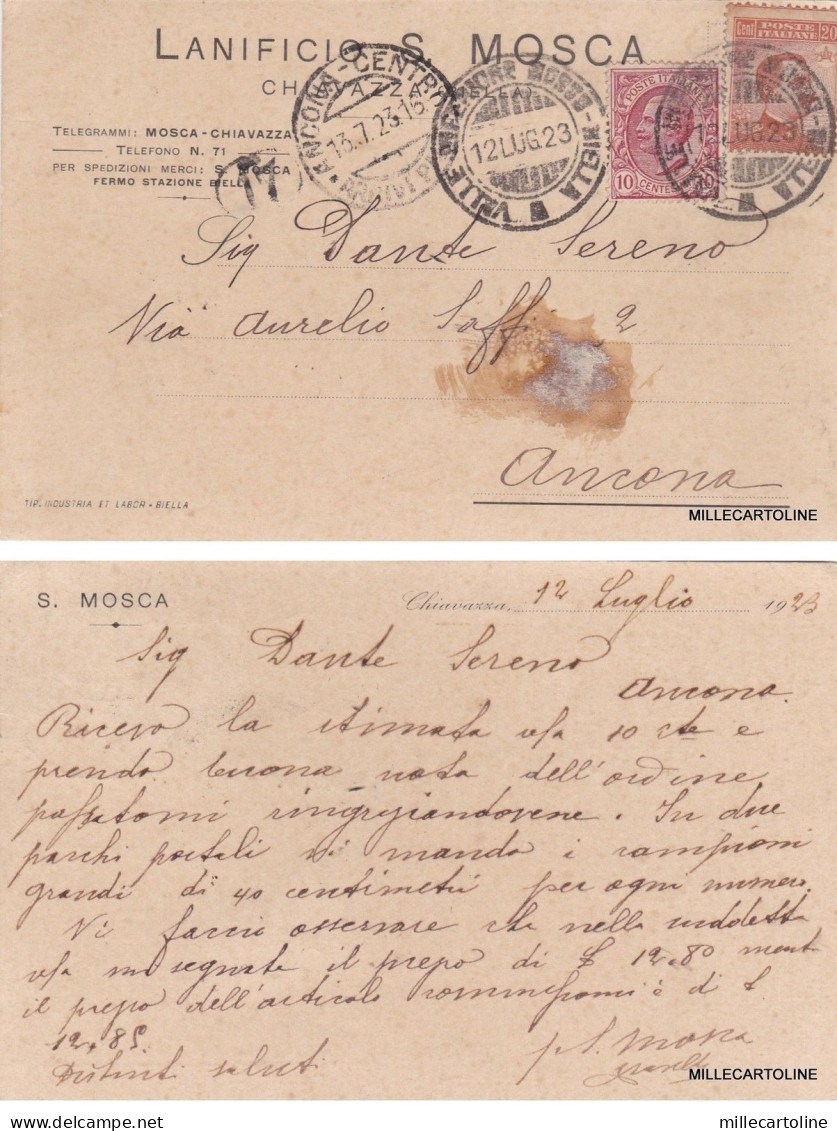 LANIFICIO S. MOSCA
CHIAVAZZA (BIELLA)
TELEGRAMMI: MOSCA-CHIAVAZZA
TELEFONO N. 71
PER SPEDIZIONI MERCI: S. MOSCA
FERMO STAZIONE BIELLA
ANCONA-CENTRO
13.7.23.16
12 LUG. 23
POSTE ITALIANE
10 CENTES. 10
Cent 20
POSTE ITALIANE
LUG. 23
Sig Dante Sereno
Via Aurelio Saffi 2
Ancona
TIP. INDUSTRIA ET LABOR - BIELLA
MILLECARTOLINE
S. MOSCA
Chiavazza, 12 Luglio 1923
Sig Dante Sereno
Ancona.
Ricevo la stimata v/a 10 cte e
prendo buona nota dell'ordine
passatomi ringraziandovene. In due
pacchi postali vi mando i campioni
grandi di 40 centimetri per ogni numero.
Vi faccio osservare che nella suddetta
v/a mi segnate il prezzo di £ 12.80 ment
il prezzo dell'articolo commessomi è di £
12.85
Distinti saluti
p S. Mosca
MILLECARTOLINE
delcampe.net
millecartoline